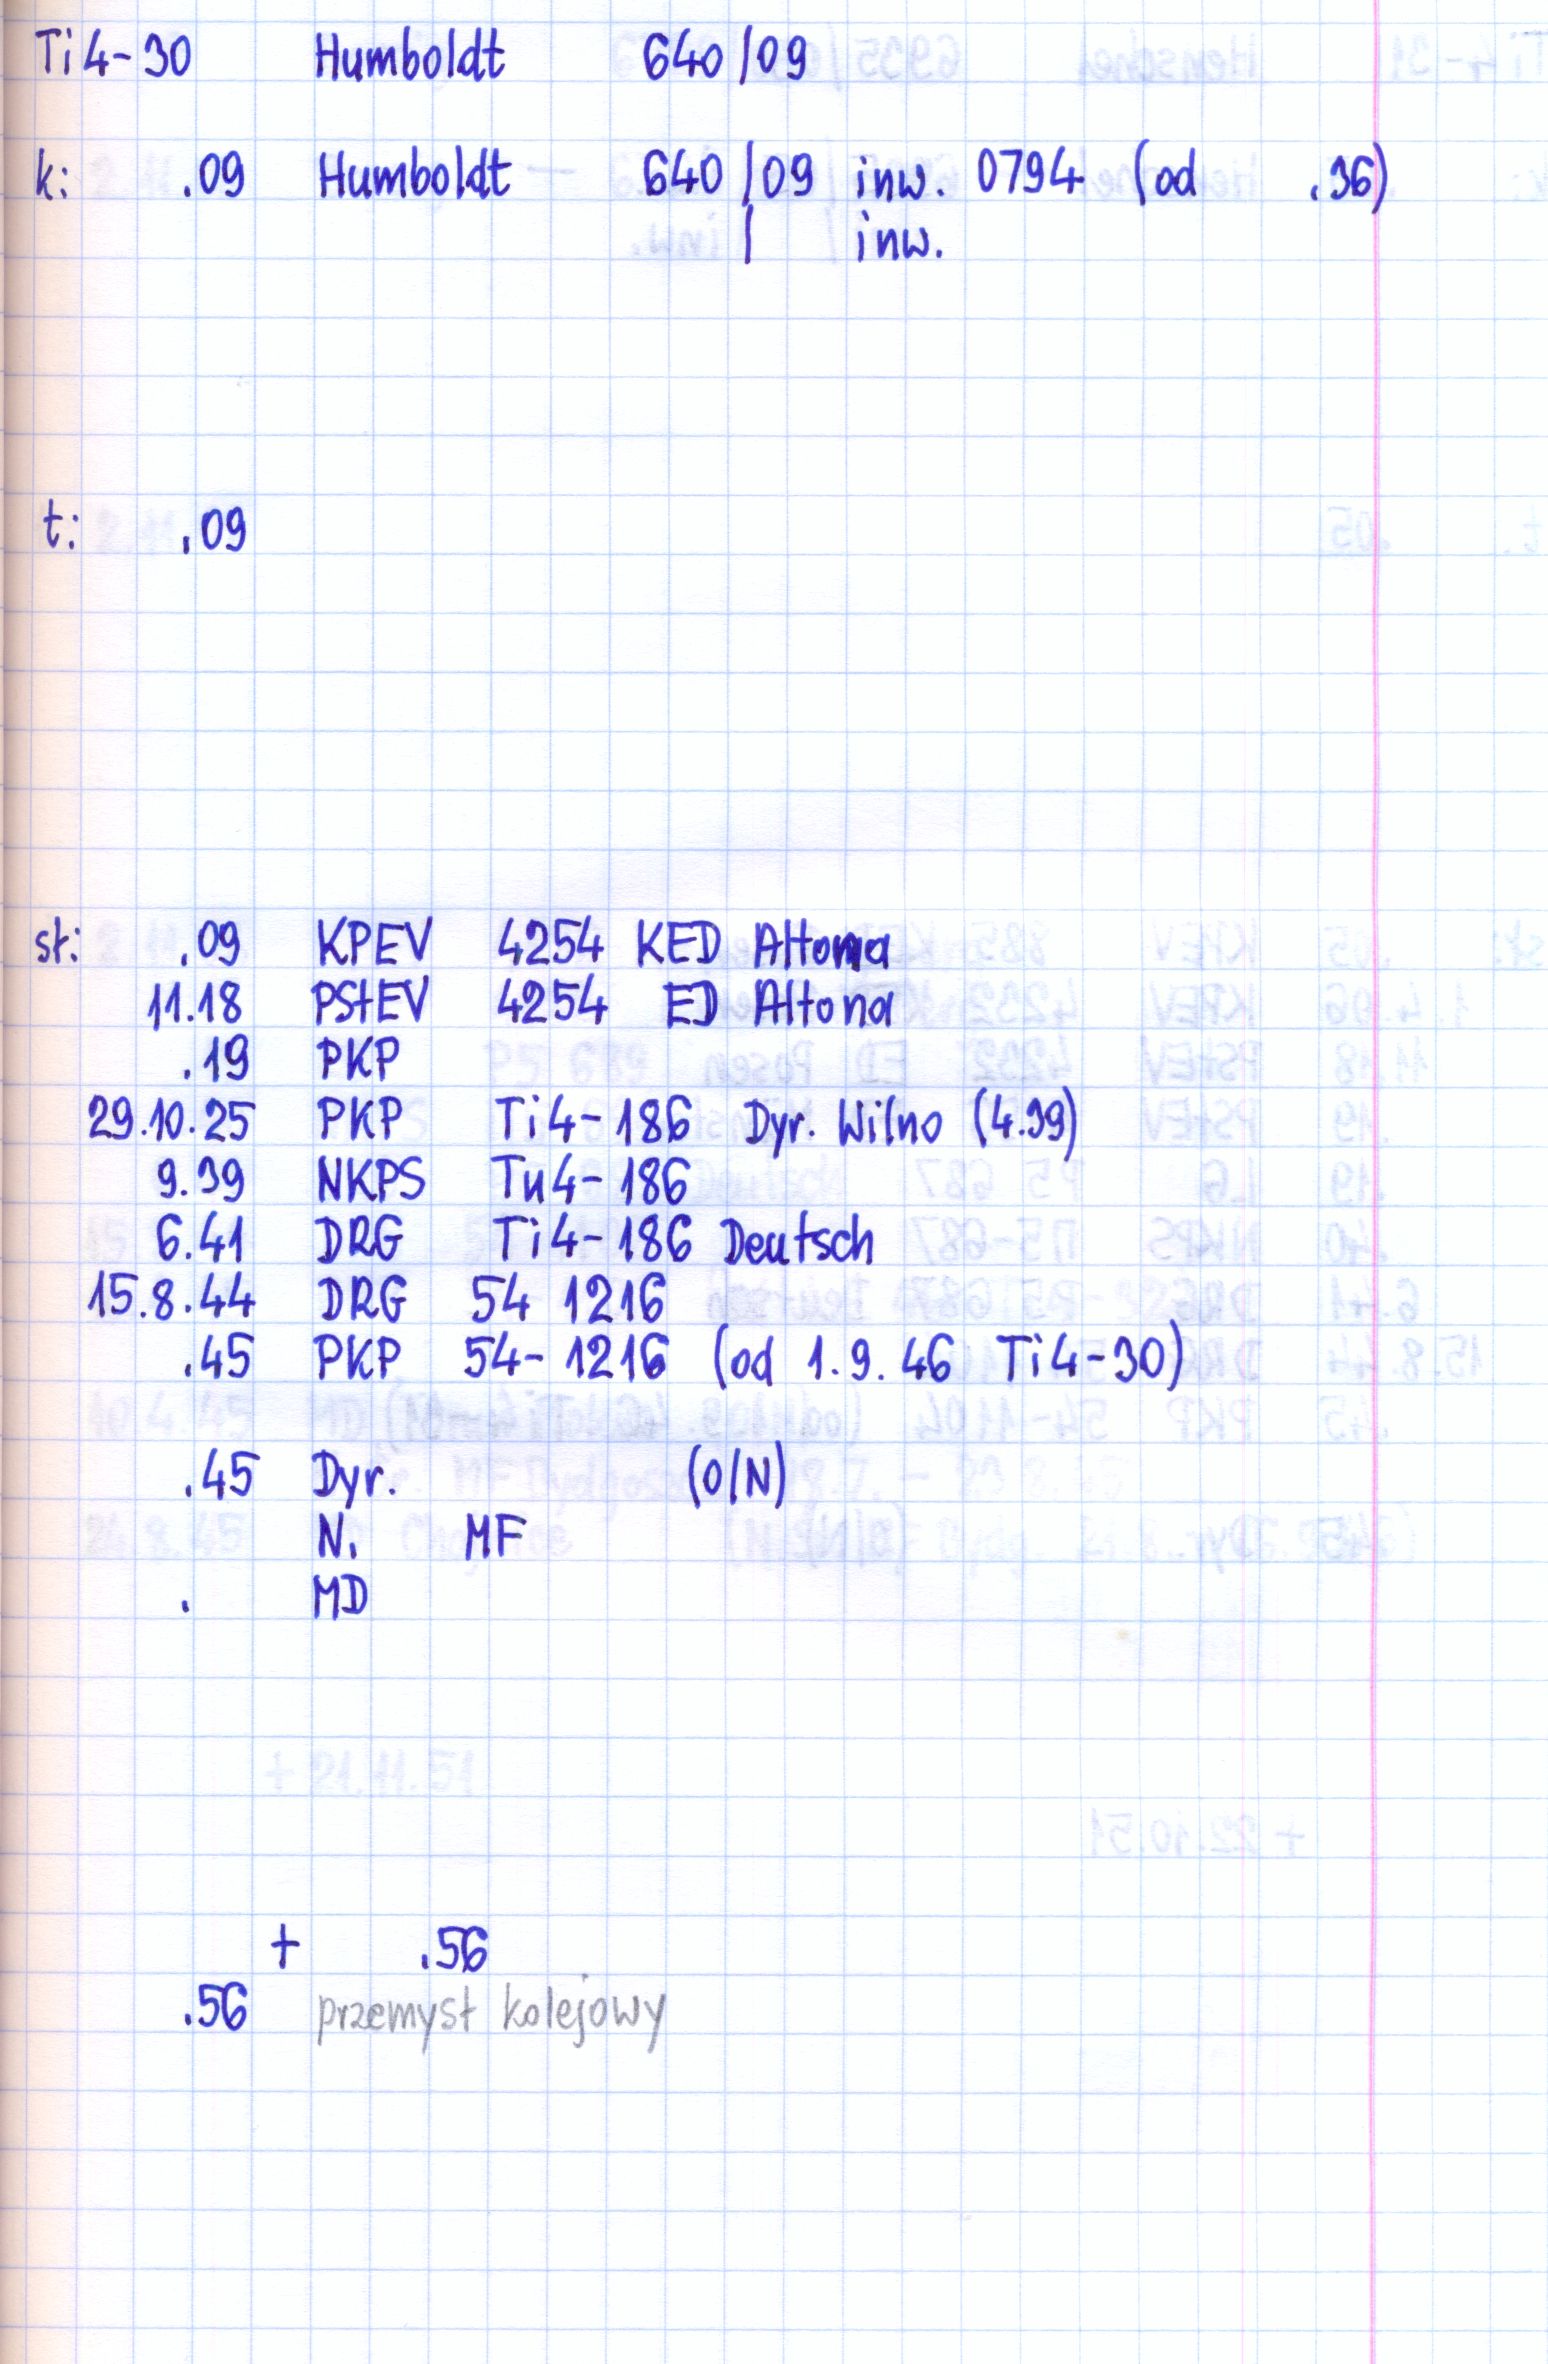 Ti4-30 Humboldt 640/09
k: .09 Humboldt 640/09 inw. 0794 (od .36)
/ inw.
t: .09
st: .09 KPEV 4254 KED Altona
11.18 PStEV 4254 ED Altona
.19 PKP
29.10.25 PKP Ti4-186 Dyr. Wilno (4.39)
9.39 NKPS Tu4-186
6.41 DRG Ti4-186 Deutsch
15.8.44 DRG 54 1216
.45 PKP 54-1216 (od 1.9.46 Ti4-30)
.45 Dyr. (O/N)
N. MF
. MD
+ .56
.56 przemysł kolejowy